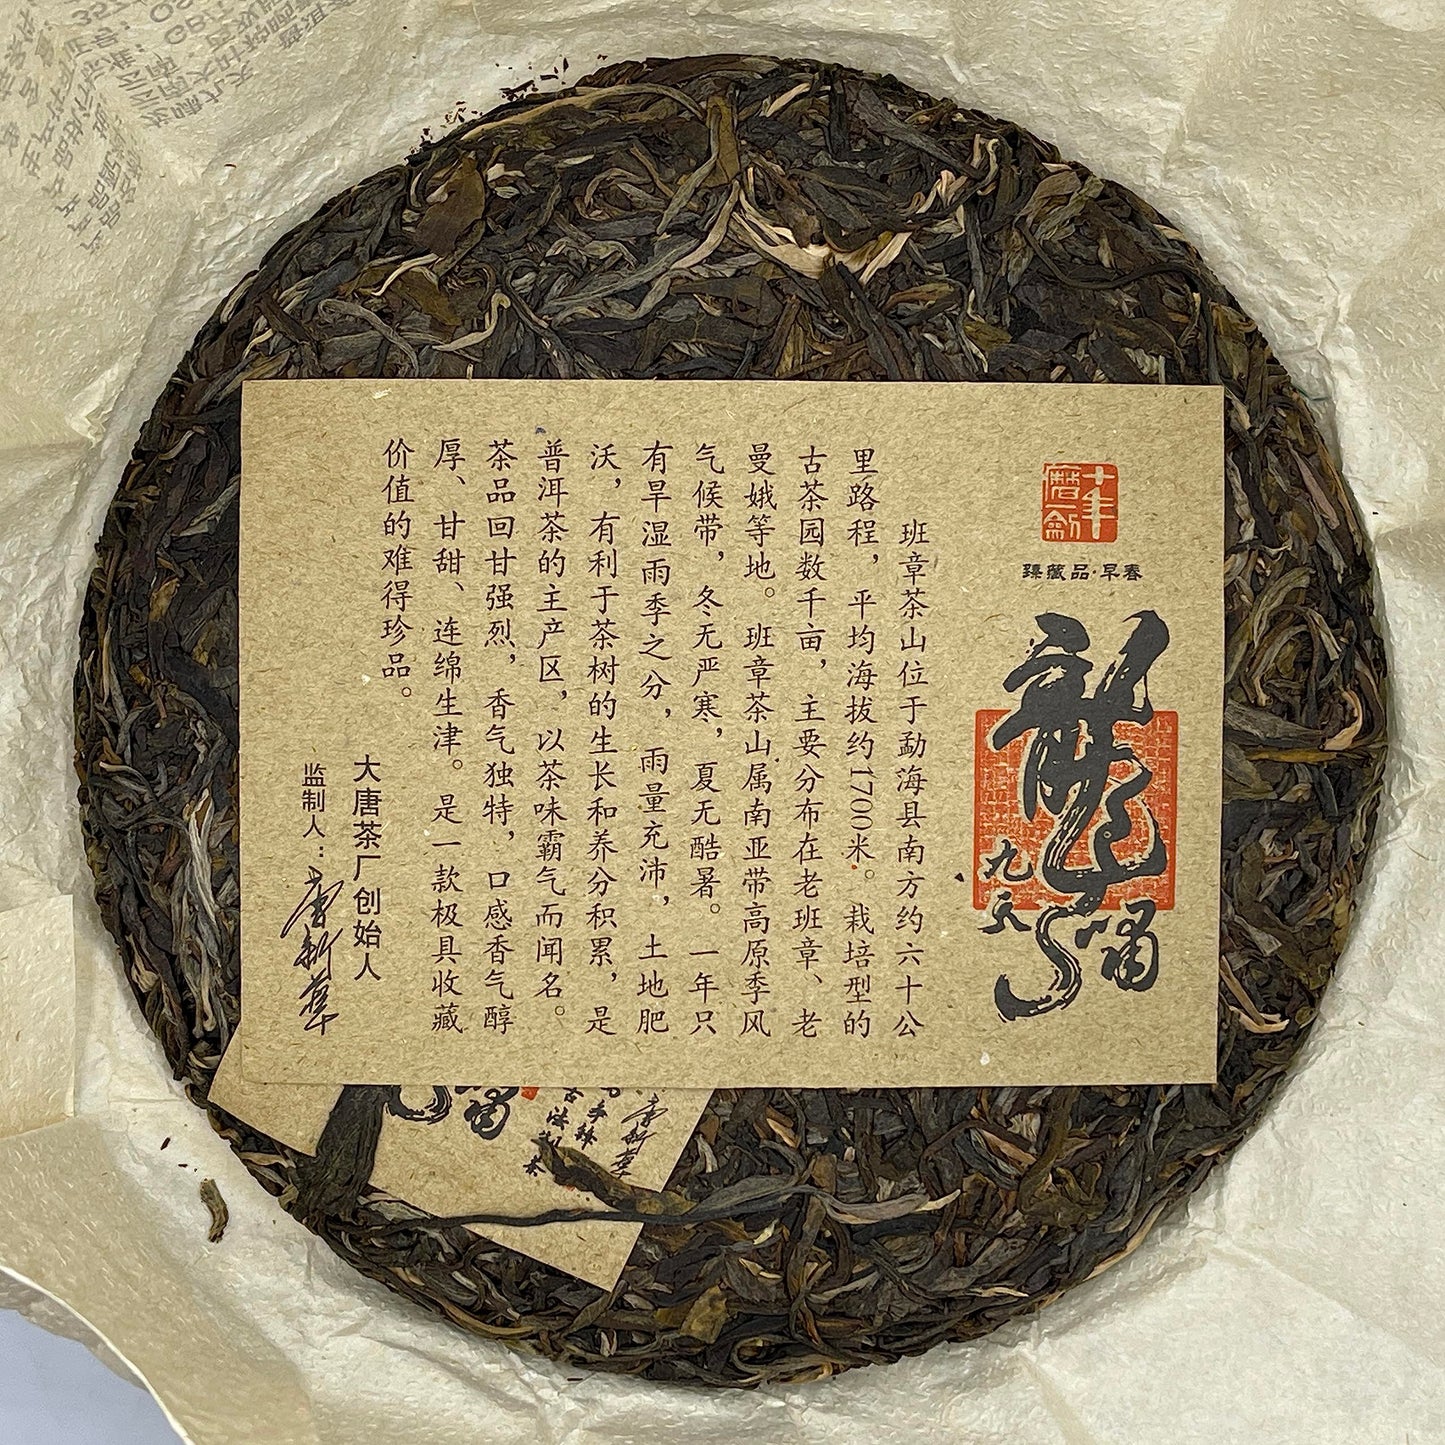 十年
磨一剑
臻藏品·早春
龍啸
九天
班章茶山位于勐海县南方约六十公
里路程，平均海拔约1700米。栽培型的
古茶园数千亩，主要分布在老班章、老
曼娥等地。班章茶山属南亚带高原季风
气候带，冬无严寒，夏无酷暑。一年只
有旱湿雨季之分，雨量充沛，土地肥
沃，有利于茶树的生长和养分积累，是
普洱茶的主产区，以茶味霸气而闻名。
茶品回甘强烈，香气独特，口感香气醇
厚、甘甜、连绵生津。是一款极具收藏
价值的难得珍品。
大唐茶厂创始人
监制人：